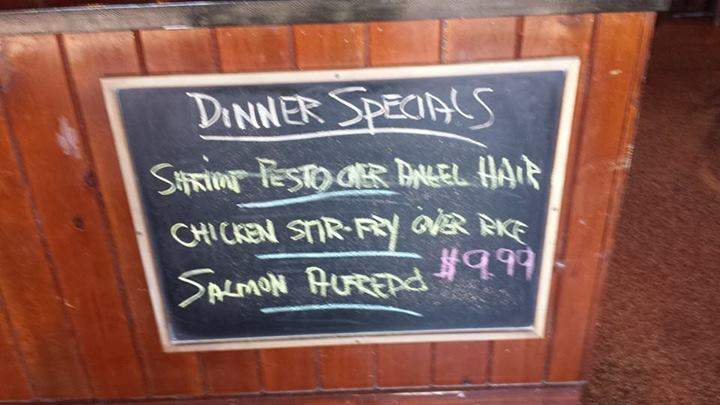 DINNER SPECIALS
SHRIMP PESTO OVER ANGEL HAIR
CHICKEN STIR-FRY OVER RICE
$9.99
SALMON ALFREDO